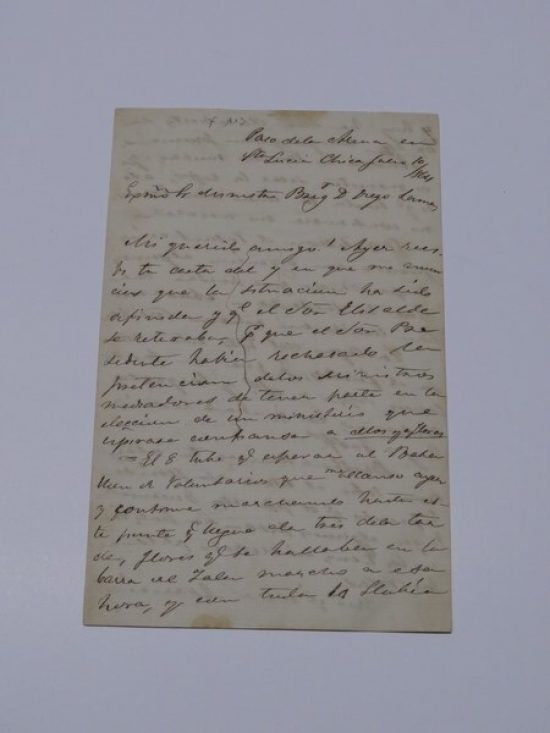 Paso de la Arena en
Sta Lucia Chica Julio 10/864
Exmo Sr Ministro Brigr D Diego Lamas
Mi querido amigo! Ayer reci-
bi tu carta del 7 en que me anun-
cias que la situacion ha sido
definida y qe el Sor Elisalde
se retiraba, pr que el Sor Pre
sidente habia rechasado la
pretencion de los Ministros
mediadores de tener parte en la
eleccion de un ministerio que
inspirase confiansa a ellos y a flores
El 8 tube qe esperar al Bata
llon de Voluntarios que me alcanso ayer
y continue marchando hasta es-
te punto qe llegue a las tres de la tar
de, flores qe se hallaba en la
barra de Tala marcho a esa
hora, y con toda la lluvia